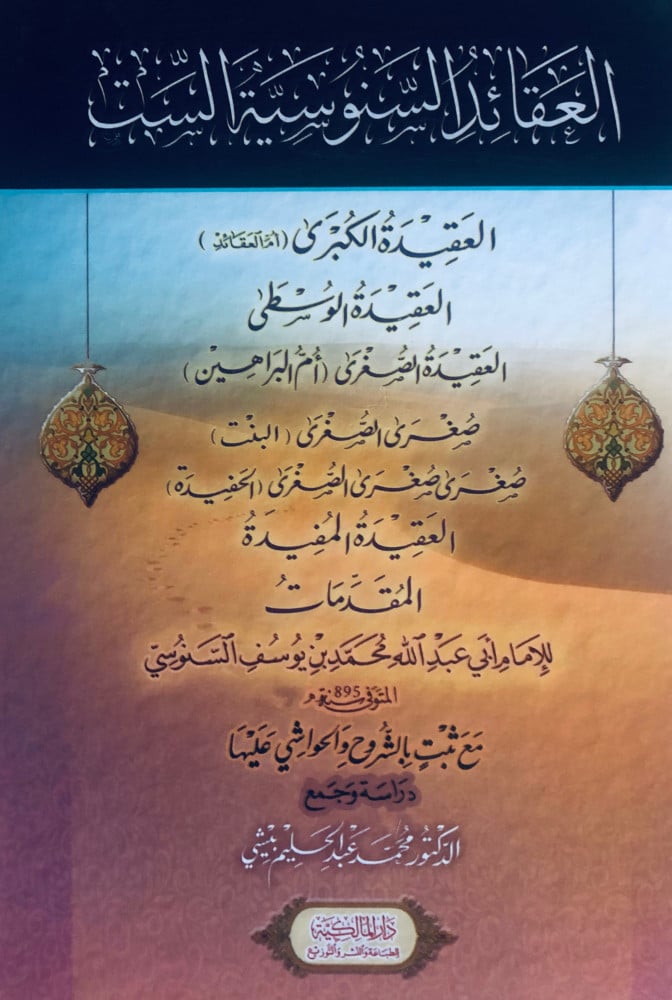 العَقَائِدُ السَّنُوسِيَّةُ السِّت
العَقِيْدَةُ الكُبْرَى (أم العَقَائِدْ)
العَقِيْدَةُ الوُسْطَى
العَقِيْدَةُ الصُّغْرَى (أُمُّ البَرَاهِيْن)
صُغْرَى الصُّغْرَى (البِنْت)
صُغْرَى صُغْرَى الصُّغْرَى (الحَفِيْدَة)
العَقِيْدَةُ المُفِيْدَةُ
المُقَدِّمَاتُ
لِلإِمَامِ أَبِي عَبْدِ اللهِ مُحَمَّدِ بْنِ يُوسُفِ السَّنُوسِيِّ
المتوفى سنة 895 هـ
مَعَ ثَبْتٍ بِالشُّرُوحِ وَالحَوَاشِي عَلَيْهَا
دِرَاسَة وَجَمع
الدّكتُور مُحَمَّد عَبْد الحَلِيم بِيشِي
دَارُ المَالِكِيَّة
للطباعة والنشر والتوزيع